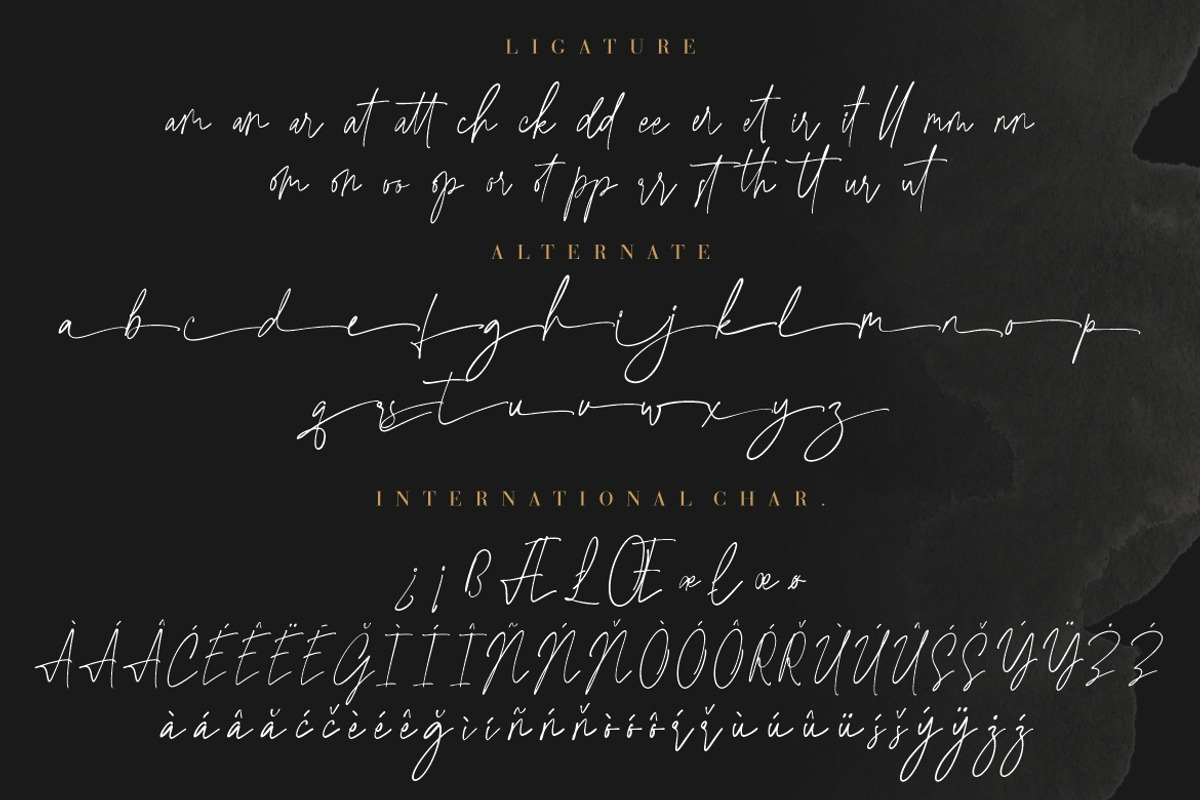 LIGATURE
am an ar at att ch ck dd ee er et ir it ll mm nn
om on oo op or ot pp rr st th tt ur ut
ALTERNATE
a b c d e f g h i j k l m n o p
q r s t u v w x y z
INTERNATIONAL CHAR.
¿ ¡ ß Æ Ł Œ æ ł œ ø
À Á Â Ć É Ê Ë Ē Ğ Ì Í Î Ñ Ń Ň Ò Ó Ô Ŕ Ř Ù Ú Û Ś Š Ý Ÿ Ż Ź
à á â ă ć č è é ê ğ ì í ñ ń ň ò ó ô ŕ ř ù ú û ü ś š ý ÿ ż ź